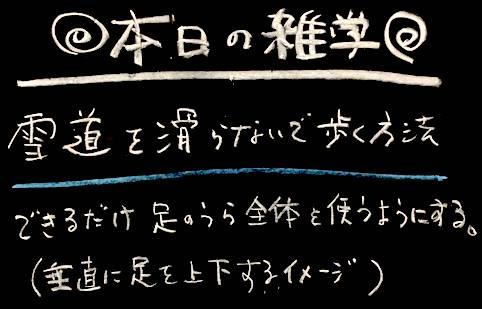 本日の雑学
雪道を滑らないで歩く方法
できるだけ足のうら全体を使うようにする。
(垂直に足を上下するイメージ)